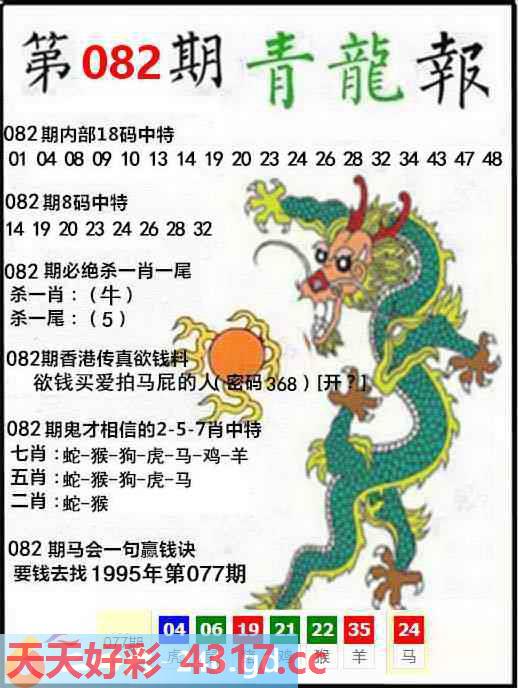 第082期青龍報
082期内部18码中特
01 04 08 09 10 13 14 19 20 23 24 26 28 32 34 43 47 48
082期8码中特
14 19 20 23 24 26 28 32
082期必绝杀一肖一尾
杀一肖：（牛）
杀一尾：（5）
082期香港传真欲钱料
欲钱买爱拍马屁的人(密码368)[开?]
082期鬼才相信的2-5-7肖中特
七肖:蛇-猴-狗-虎-马-鸡-羊
五肖:蛇-猴-狗-虎-马
二肖:蛇-猴
082期马会一句赢钱诀
要钱去找1995年第077期
04 06 19 21 22 35 24
077期 虎 鸡 猴 羊 马
天天好彩 4317.cc